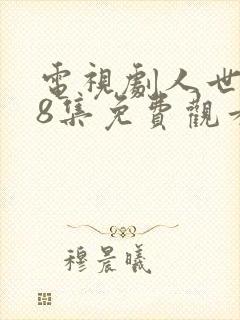 電視劇人世
8集免費觀
穆晨曦